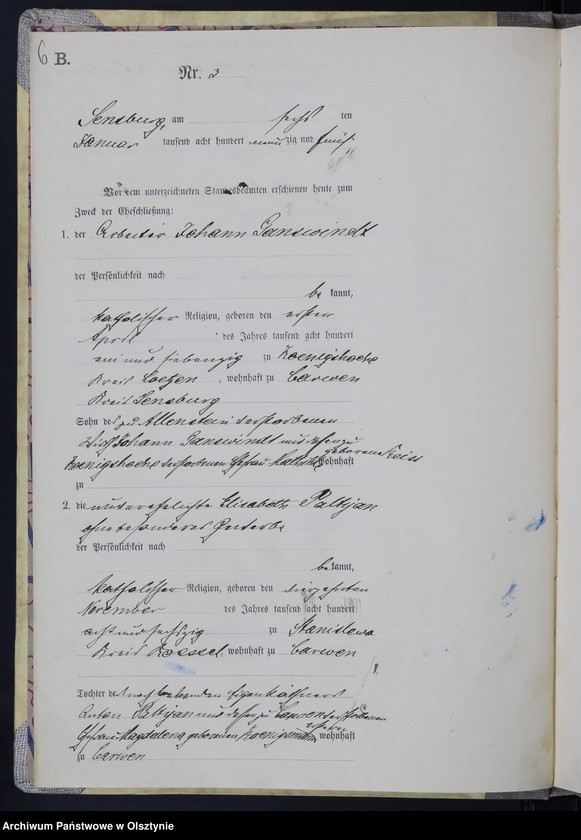 6
B.
Nr. 3
Sensburg, am sechs ten
Januar tausend acht hundert neun zig und fünf
Vor dem unterzeichneten Standesbeamten erschienen heute zum
Zweck der Eheschließung:
1. der Arbeiter Johann Ganswindt
der Persönlichkeit nach
be kannt,
katholischer Religion, geboren den ersten
April des Jahres tausend acht hundert
ein und siebenzig zu Koenigshoehe
Kreis Loetzen, wohnhaft zu Carwen
Kreis Sensburg
Sohn des zu Allenstein verstorbenen
Wirth Johann Ganswindt und dessen zu
Koenigshoehe verstorbenen Ehefrau geborenen wohnhaft
zu
2. die unverehelichte Elisabeth Palbijan
ohne besonderes Gewerbe
der Persönlichkeit nach
be kannt,
katholischer Religion, geboren den vierzehnten
November des Jahres tausend acht hundert
acht und sechszig zu Stanislewo
Kreis Roessel wohnhaft zu Carwen
Tochter des noch lebenden Eigenkäthners
Anton Palbijan und dessen zu Carwen verstorbenen
Ehefrau Magdalena geborenen wohnhaft
zu Carwen
Archiwum Państwowe w Olsztynie